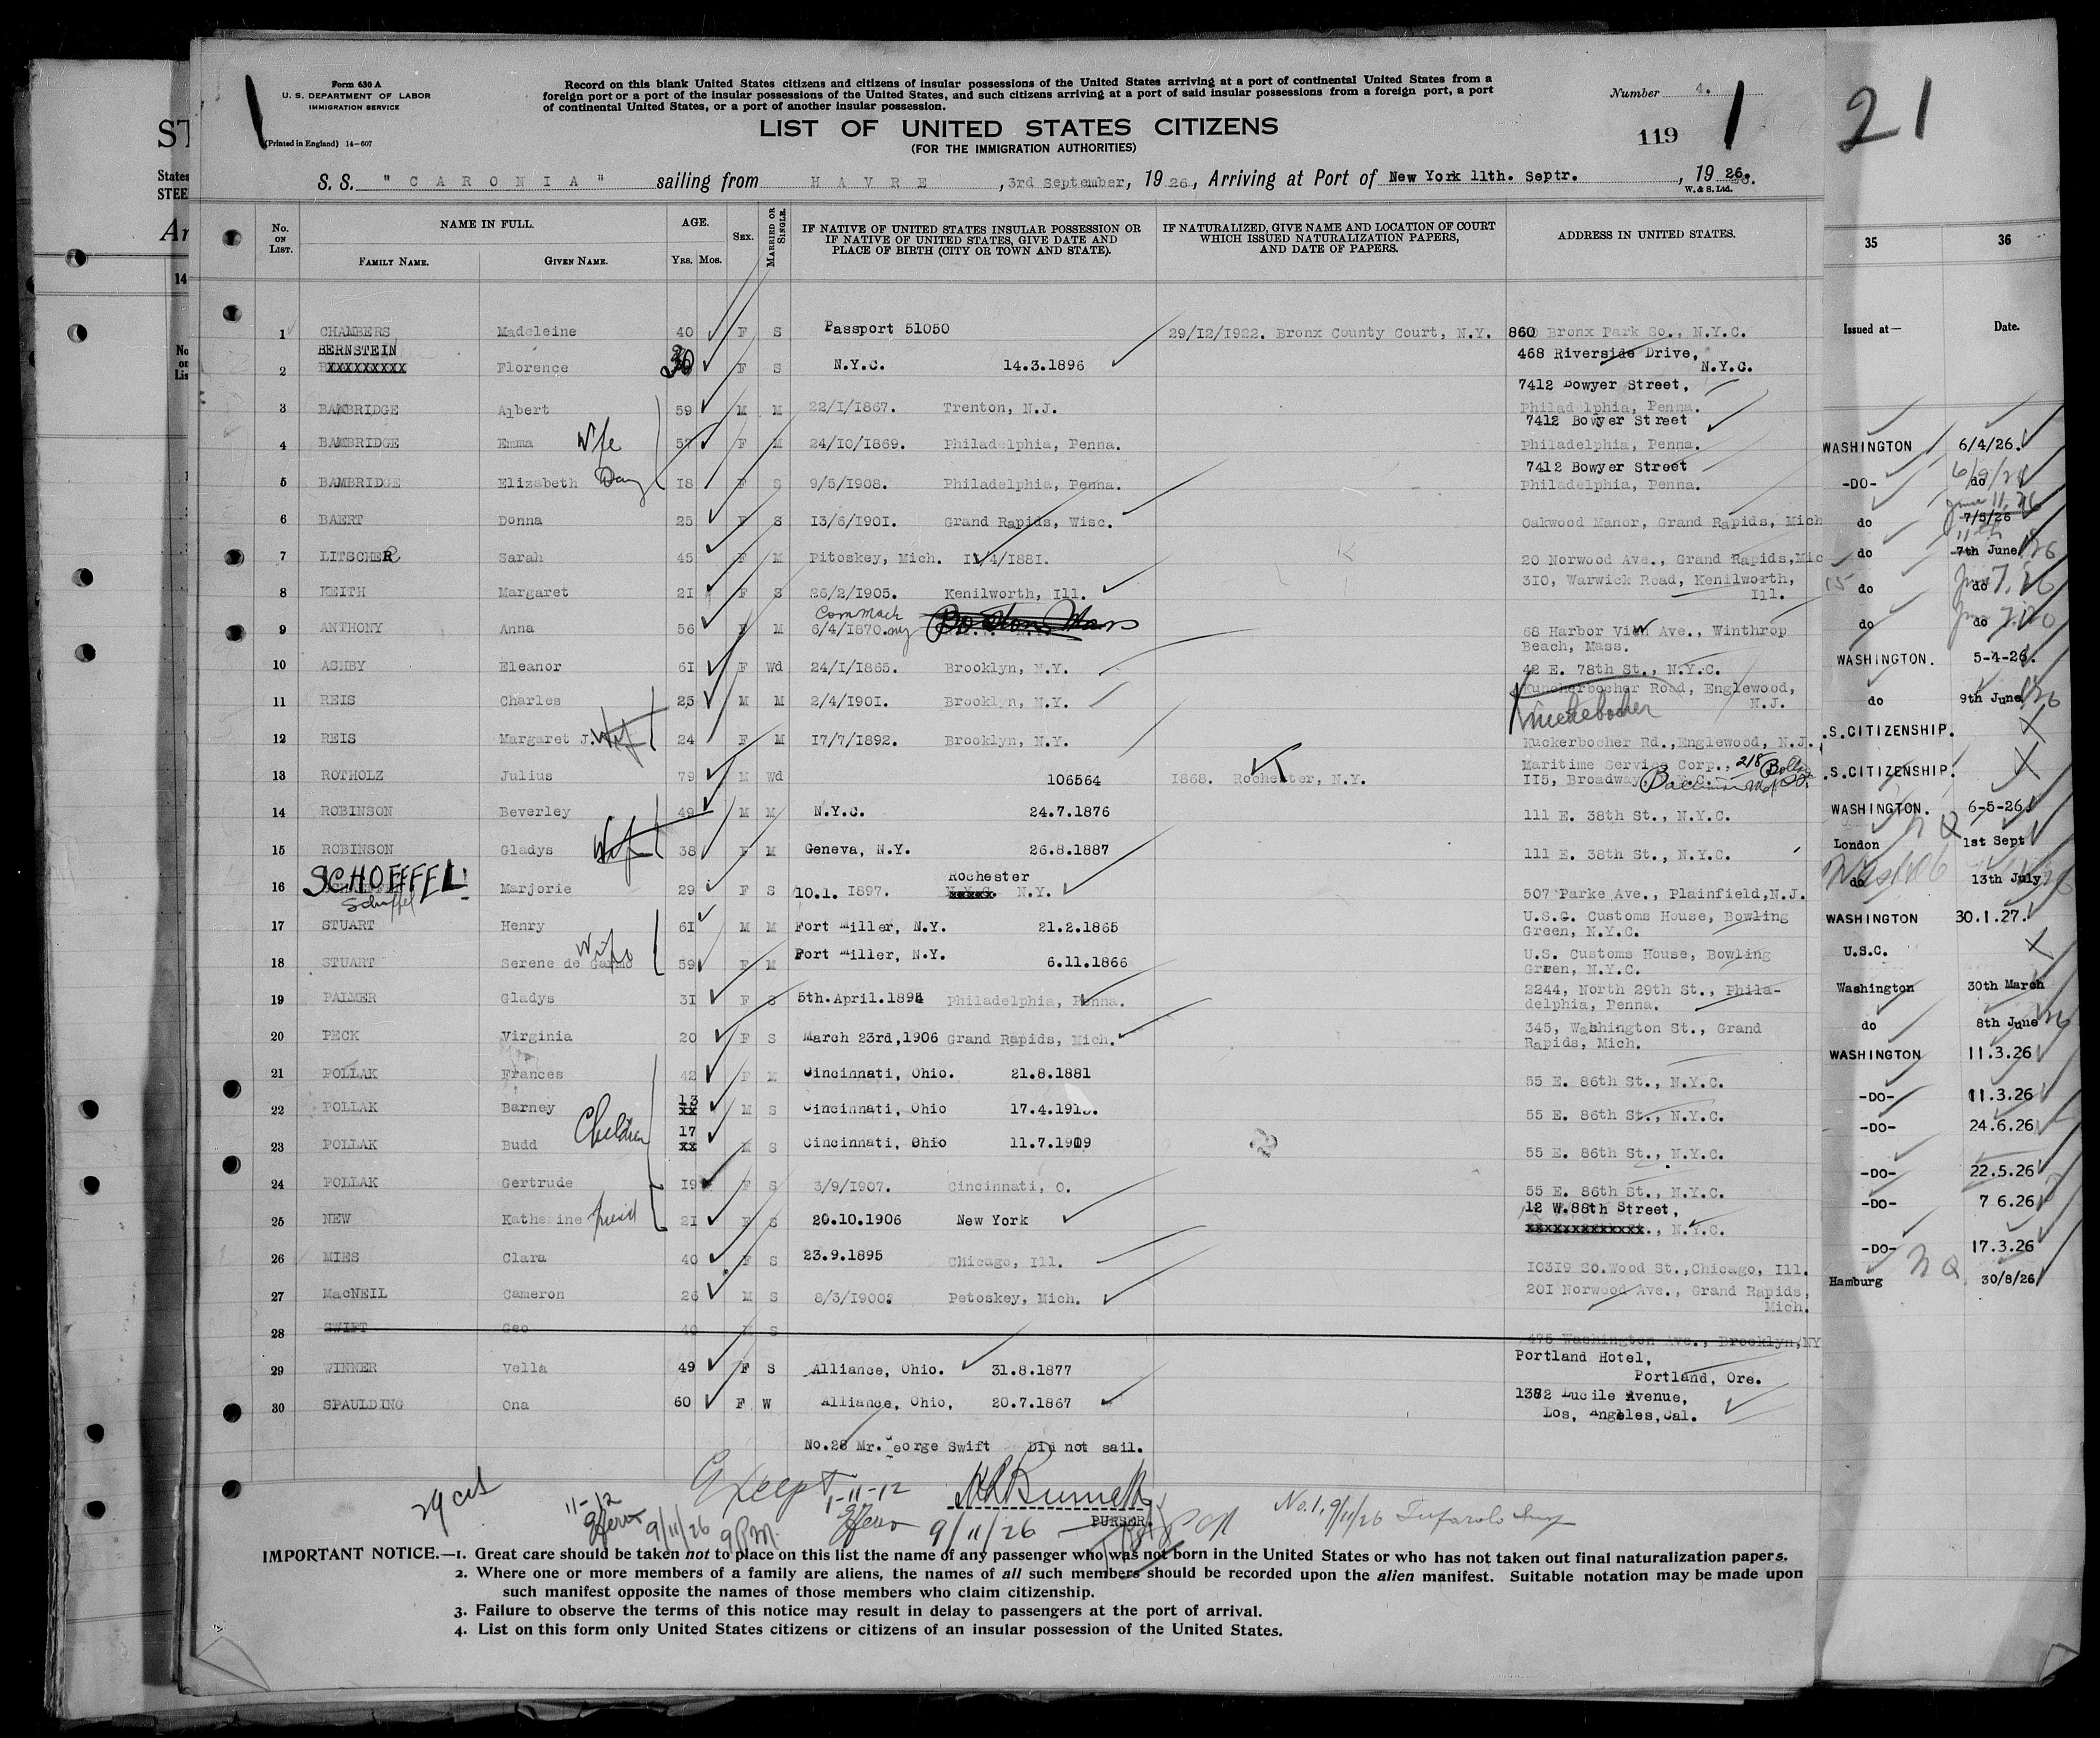 21
Form 630 A
U. S. DEPARTMENT OF LABOR
IMMIGRATION SERVICE
(Printed in England) 14-607
Record on this blank United States citizens and citizens of insular possessions of the United States arriving at a port of continental United States from a
foreign port or a port of the insular possessions of the United States, and such citizens arriving at a port of said insular possessions from a foreign port, a port
of continental United States, or a port of another insular possession.
Number 4.
LIST OF UNITED STATES CITIZENS
(FOR THE IMMIGRATION AUTHORITIES)
119 1
S. S. "CARONIA" sailing from HAVRE, 3rd September, 1926, Arriving at Port of New York 11th. Septr., 1926.
W. & S. Ltd.
No. ON LIST. NAME IN FULL. FAMILY NAME. GIVEN NAME. AGE. YRS. MOS. SEX. MARRIED OR SINGLE. IF NATIVE OF UNITED STATES INSULAR POSSESSION OR IF NATIVE OF UNITED STATES, GIVE DATE AND PLACE OF BIRTH (CITY OR TOWN AND STATE). IF NATURALIZED, GIVE NAME AND LOCATION OF COURT WHICH ISSUED NATURALIZATION PAPERS, AND DATE OF PAPERS. ADDRESS IN UNITED STATES.
1 CHAMBERS Madeleine 40 F S Passport 51050 29/12/1922. Bronx County Court, N.Y. 860 Bronx Park So., N.Y.C.
2 BERNSTEIN Florence 30 F S N.Y.C. 14.3.1896 468 Riverside Drive, N.Y.C.
3 BAMBRIDGE Albert 59 M M 22/1/1867. Trenton, N.J. 7412 Bowyer Street, Philadelphia, Penna.
4 BAMBRIDGE Emma Wife 57 F M 24/10/1869. Philadelphia, Penna. 7412 Bowyer Street Philadelphia, Penna.
5 BAMBRIDGE Elizabeth Dau 18 F S 9/5/1908. Philadelphia, Penna. 7412 Bowyer Street Philadelphia, Penna.
6 BAERT Donna 25 F S 13/6/1901. Grand Rapids, Wisc. Oakwood Manor, Grand Rapids, Mich
7 LITSCHER Sarah 45 F M Pitoskey, Mich. 11/4/1881. 20 Norwood Ave., Grand Rapids, Mic
8 KEITH Margaret 21 F S 26/2/1905. Kenilworth, Ill. 310, Warwick Road, Kenilworth, Ill.
9 ANTHONY Anna 56 F M 6/4/1870. Commack ny 68 Harbor View Ave., Winthrop Beach, Mass.
10 ASHBY Eleanor 61 F Wd 24/1/1865. Brooklyn, N.Y. 42 E. 78th St., N.Y.C.
11 REIS Charles 25 M M 2/4/1901. Brooklyn, N.Y. Kuckerbocher Road, Englewood, N.J.
12 REIS Margaret J. Wife 24 F M 17/7/1892. Brooklyn, N.Y. Kuckerbocher Rd., Englewood, N.J.
13 ROTHOLZ Julius 79 M Wd 106564 1868. Rochester, N.Y. Maritime Service Corp., 115, Broadway, N.Y.C. 218
14 ROBINSON Beverley 49 M M N.Y.C. 24.7.1876 111 E. 38th St., N.Y.C.
15 ROBINSON Gladys Wife 38 F M Geneva, N.Y. 26.8.1887 111 E. 38th St., N.Y.C.
16 SCHOEFFEL Marjorie 29 F S 10.1. 1897. Rochester N.Y. 507 Parke Ave., Plainfield, N.J.
17 STUART Henry 61 M M Fort Miller, N.Y. 21.2.1865 U.S.G. Customs House, Bowling Green, N.Y.C.
18 STUART Serene de Garmo Wife 59 F M Fort Miller, N.Y. 6.11.1866 U.S. Customs House, Bowling Green, N.Y.C.
19 PALMER Gladys 31 F S 5th. April. 1894 Philadelphia, Penna. 2244, North 29th St., Philadelphia, Penna.
20 PECK Virginia 20 F S March 23rd, 1906 Grand Rapids, Mich. 345, Washington St., Grand Rapids, Mich.
21 POLLAK Frances 42 F M Cincinnati, Ohio. 21.8.1881 55 E. 86th St., N.Y.C.
22 POLLAK Barney 13 M S Cincinnati, Ohio 17.4.191 55 E. 86th St., N.Y.C.
Children
23 POLLAK Budd 17 M S Cincinnati, Ohio 11.7.1909 55 E. 86th St., N.Y.C.
24 POLLAK Gertrude 19 F S 3/9/1907. Cincinnati, O. 55 E. 86th St., N.Y.C.
25 NEW Katherine friend 21 F S 20.10.1906 New York 12 W.88th Street, N.Y.C.
26 MIES Clara 40 F S 23.9.1895 Chicago, Ill. 10319 So.Wood St., Chicago, Ill.
27 MacNEIL Cameron 26 M S 8/3/1900? Petoskey, Mich. 201 Norwood Ave., Grand Rapids, Mich.
28 SWIFT Geo 40 M S 475 Washington Ave., Brooklyn, NY
29 WINNER Vella 49 F S Alliance, Ohio. 31.8.1877 Portland Hotel, Portland, Ore.
30 SPAULDING Ona 60 F W Alliance, Ohio, 20.7.1867 1382 Lucile Avenue, Los, Angeles, Cal.
No.28 Mr. George Swift Did not sail.
29 cit
11-12 9/11/26 9 P.M.
Except 1-11-12
9/11/26
PURSER.
No. 1, 9/11/26
IMPORTANT NOTICE.—1. Great care should be taken not to place on this list the name of any passenger who was not born in the United States or who has not taken out final naturalization papers.
2. Where one or more members of a family are aliens, the names of all such members should be recorded upon the alien manifest. Suitable notation may be made upon
such manifest opposite the names of those members who claim citizenship.
3. Failure to observe the terms of this notice may result in delay to passengers at the port of arrival.
4. List on this form only United States citizens or citizens of an insular possession of the United States.
35 36
Issued at— Date.
WASHINGTON 6/4/26.
-DO- do
do 7/5/26
do 7th June
do do
do do
WASHINGTON. 5-4-26.
do 9th June
.S.CITIZENSHIP.
.S.CITIZENSHIP.
WASHINGTON. 6-5-26
London 1st Sept
do 13th July
WASHINGTON 30.1.27.
U.S.C.
Washington 30th March
do 8th June
WASHINGTON 11.3.26
-DO- 11.3.26
-DO- 24.6.26
-DO- 22.5.26
-DO- 7 6.26
-DO- 17.3.26
Hamburg 30/8/26